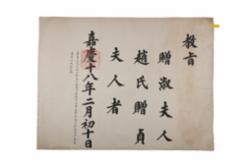 教旨
贈淑夫人
趙氏贈貞
夫人者
嘉慶十八年二月初十日